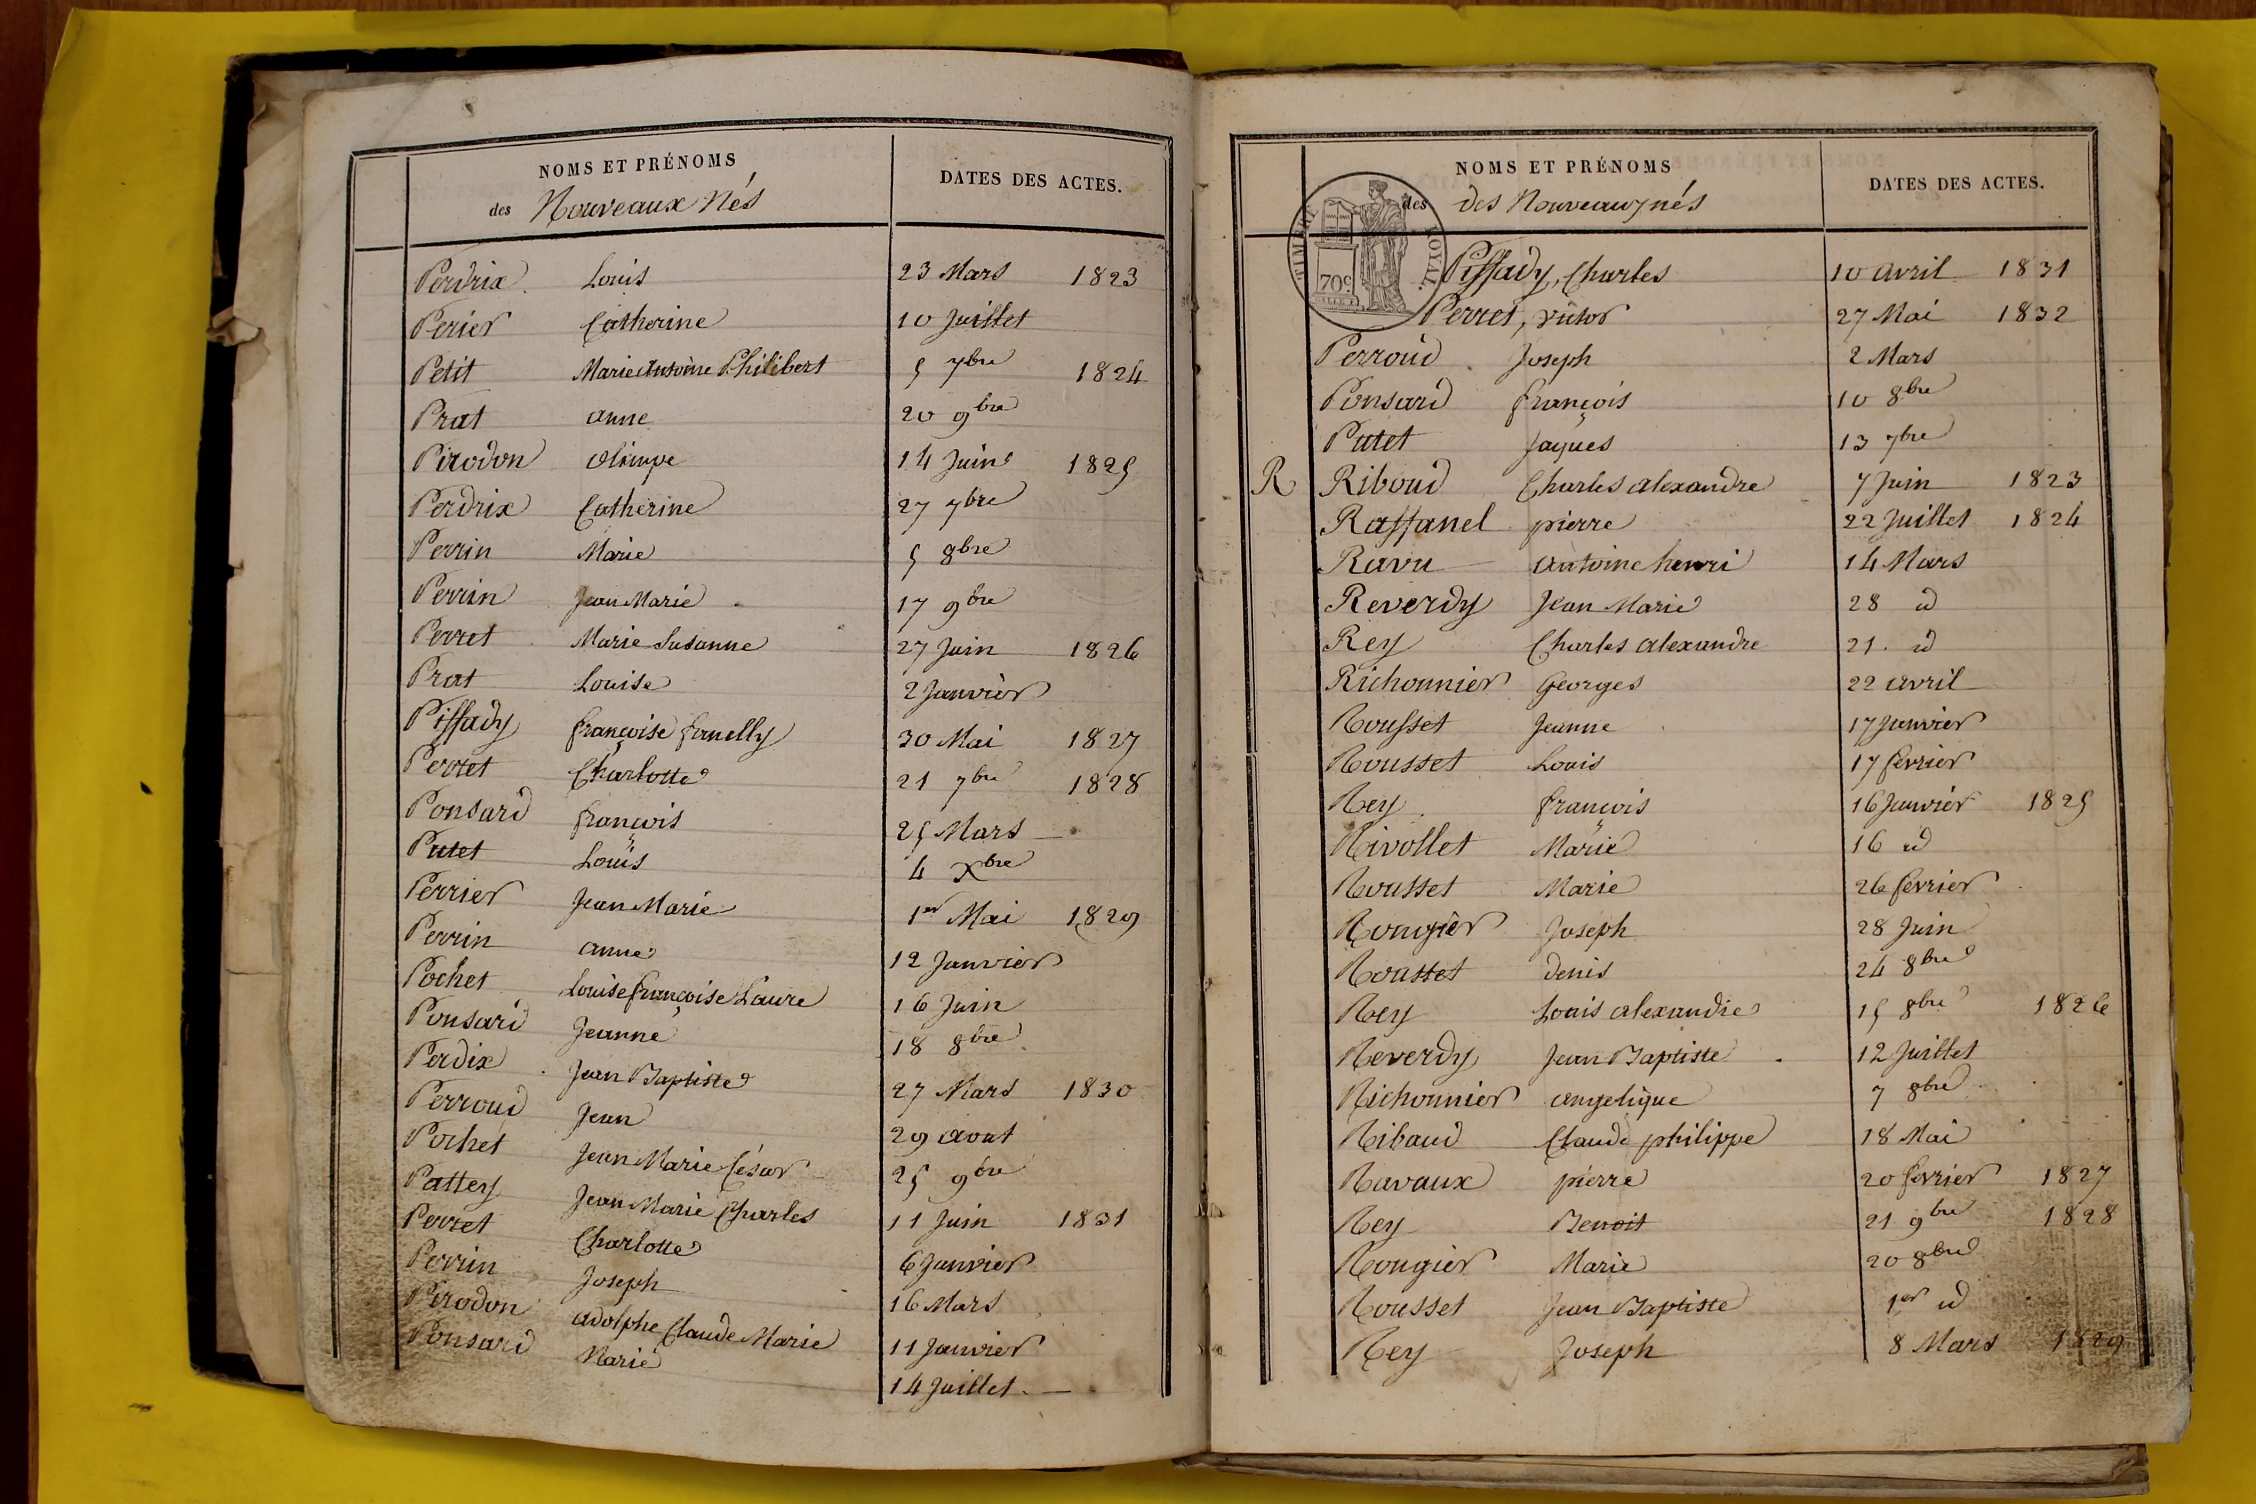 NOMS ET PRÉNOMS
des Nouveaux Nés
DATES DES ACTES.
Perdrix Louis 23 Mars 1823
Perier Catherine 10 Juillet
Petit Marie Antoine Philibert 5 7bre 1824
Prat anne 20 9bre
Pirodon Olimpe 14 Juin 1825
Perdrix Catherine 27 7bre
Perrin Marie 5 8bre
Perrin Jean Marie 17 9bre
Perret Marie Susanne 27 Juin 1826
Prat Louise 2 Janvier
Piffady françoise fanelly 30 Mai 1827
Perret Charlotte 21 7bre 1828
Ponsard françois 25 Mars
Putet Louis 4 Xbre
Perrier Jean Marie 1er Mai 1829
Perrin anne 12 Janvier
Pochet Louise françoise Laure 16 Juin
Ponsard Jeanne 18 8bre
Perdix Jean Baptiste 27 Mars 1830
Perroud Jean 29 aout
Pochet Jean Marie César 25 9bre
Pattey Jean Marie Charles 11 Juin 1831
Perret Charlotte 6 Janvier
Perrin Joseph 16 Mars
Pirodon adolphe Claude Marie 11 Janvier
Ponsard Marie 14 Juillet
NOMS ET PRÉNOMS
des des Nouveaux nés
DATES DES ACTES.
TIMBRE ROYAL
70c.
Piffady, Charles 10 avril 1831
Perret, victor 27 Mai 1832
Perroud Joseph 2 Mars
Ponsard françois 10 8bre
Putet Jaques 13 7bre
R Riboud Charles alexandre 7 Juin 1823
Raffanel pierre 22 Juillet 1824
Ravu antoine henri 14 Mars
Reverdy Jean Marie 28 id
Rey Charles alexandre 21. id
Richonnier Georges 22 avril
Rousset Jeanne 17 Janvier
Rousset Louis 17 fevrier
Rey françois 16 Janvier 1825
Rivollet Marie 16 id
Rousset Marie 26 fevrier
Rougier Joseph 28 Juin
Rousset denis 24 8bre
Rey Louis alexandre 15 8bre 1826
Reverdy Jean Baptiste 12 Juillet
Richonnier angelique 7 8bre
Ribaud Claude philippe 18 Mai
Ravaux pierre 20 fevrier 1827
Rey Benoit 21 9bre 1828
Rougier Marie 20 8bre
Rousset Jean Baptiste 1er id
Rey Joseph 8 Mars 1829